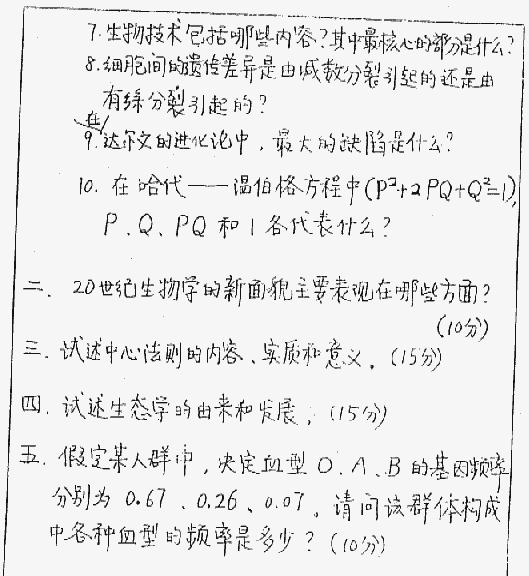 7.生物技术包括哪些内容?其中最核心的部分是什么?
8.细胞间的遗传差异是由减数分裂引起的还是由
有丝分裂引起的?
在
9.达尔文的进化论中,最大的缺陷是什么?
10.在哈代——温伯格方程中(P²+2PQ+Q²=1),
P、Q、PQ和1各代表什么?
二、20世纪生物学的新面貌主要表现在哪些方面?
(10分)
三.试述中心法则的内容、实质和意义。(15分)
四.试述生态学的由来和发展。(15分)
五.假定某人群中,决定血型O、A、B的基因频率
分别为0.67、0.26、0.07。请问该群体构成
中各种血型的频率是多少?(10分)